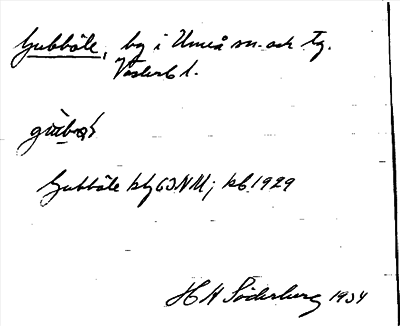 Gubböle, by i Umeå sn. och tg.
Västerb l.
Gubböle blg 63NM; kb 1929
H H Söderberg 1934